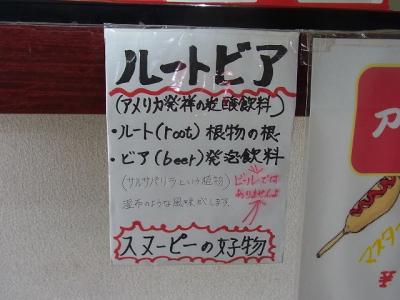 ルートビア
(アメリカ発祥の炭酸飲料)
・ルート(root)根物の根・
・ビア(beer)発泡飲料
(サルサパリラという植物)
湿布のような風味がします
ビールでは
ありませんよ
スヌーピーの好物
マスター
¥